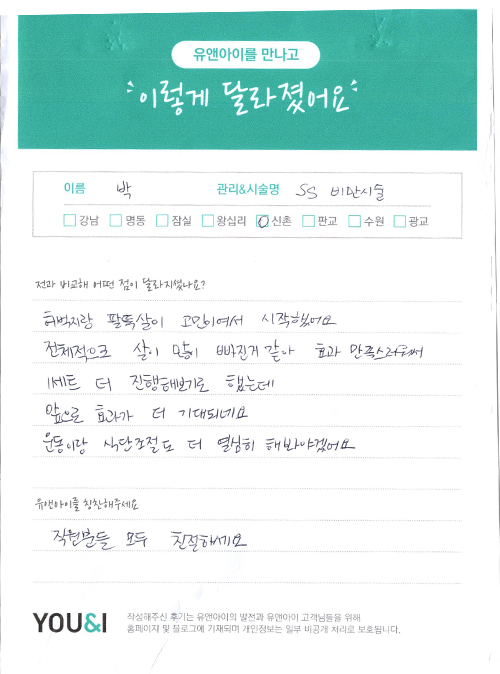 유앤아이를 만나고
이렇게 달라졌어요
이름 박 관리&시술명 SS 비만시술
강남 명동 잠실 왕십리 신촌 판교 수원 광교
전과 비교해 어떤 점이 달라지셨나요?
허벅지랑 팔뚝살이 고민이여서 시작했어요
전체적으로 살이 많이 빠진거 같아 효과 만족스러워서
1세트 더 진행해보기로 했는데
앞으로 효과가 더 기대되네요
운동이랑 식단조절도 더 열심히 해봐야겠어요
유앤아이를 칭찬해주세요
직원분들 모두 친절하세요
YOU&I
작성해주신 후기는 유앤아이의 발전과 유앤아이 고객님들을 위해
홈페이지 및 블로그에 기재되며 개인정보는 일부 비공개 처리로 보호됩니다.